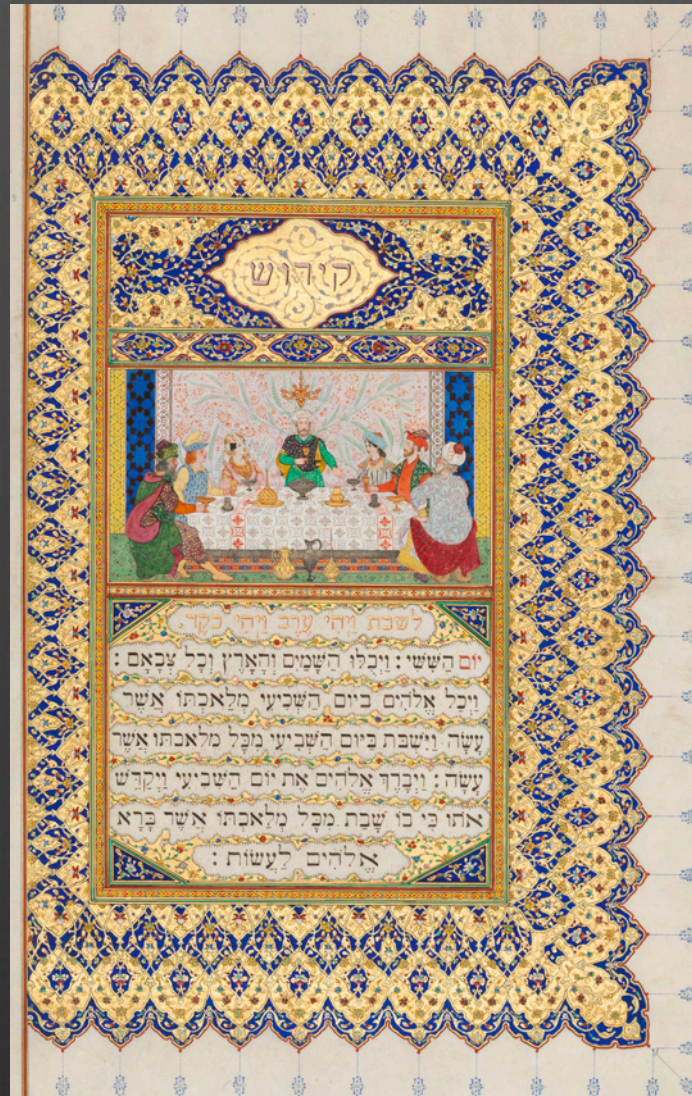 קידוש
לשבת וַיְהִי עֶרֶב וַיְהִי בֹקֶר.
יוֹם הַשִּׁשִּׁי : וַיְכֻלּוּ הַשָּׁמַיִם וְהָאָרֶץ וְכָל צְבָאָם :
וַיְכַל אֱלֹהִים בַּיּוֹם הַשְּׁבִיעִי מְלַאכְתּוֹ אֲשֶׁר
עָשָׂה וַיִּשְׁבֹּת בַּיּוֹם הַשְּׁבִיעִי מִכָּל מְלַאכְתּוֹ אֲשֶׁר
עָשָׂה : וַיְבָרֶךְ אֱלֹהִים אֶת יוֹם הַשְּׁבִיעִי וַיְקַדֵּשׁ
אֹתוֹ כִּי בוֹ שָׁבַת מִכָּל מְלַאכְתּוֹ אֲשֶׁר בָּרָא
אֱלֹהִים לַעֲשׂוֹת :